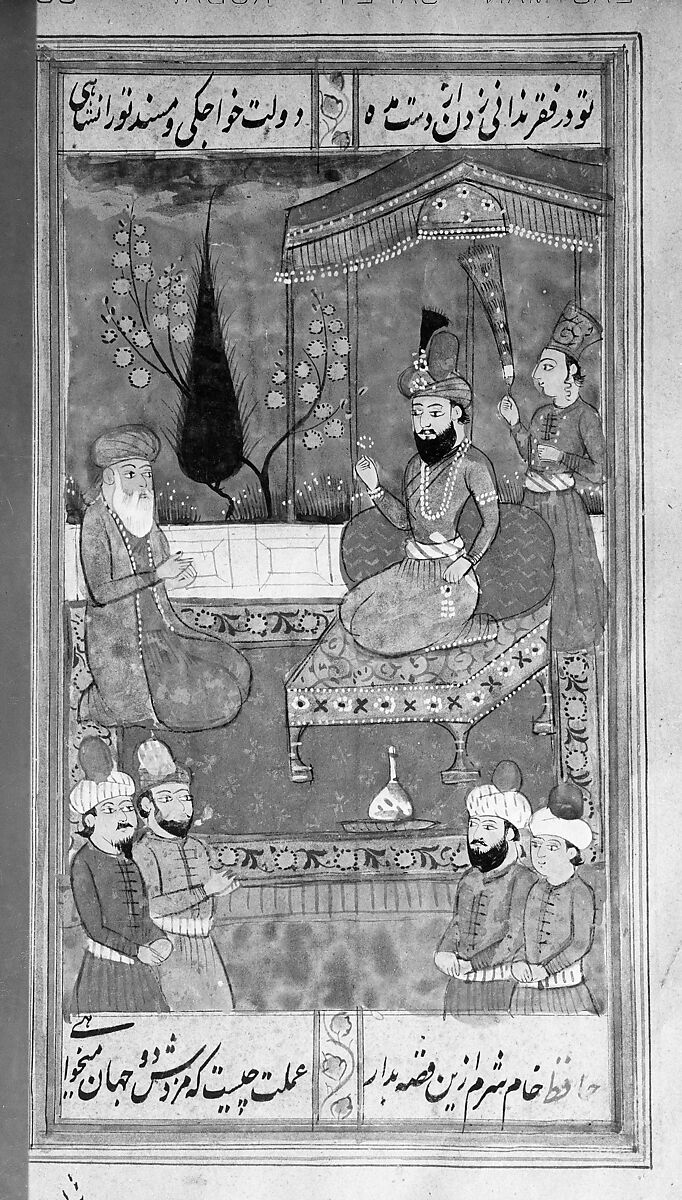 تو در فقر ندانی زدن از دست مده دولت خواجکی و مسند تورانشاهی
حافظ خام شرم ازین قصه بدار عملت چیست که مزدش دو جهان میخواهی